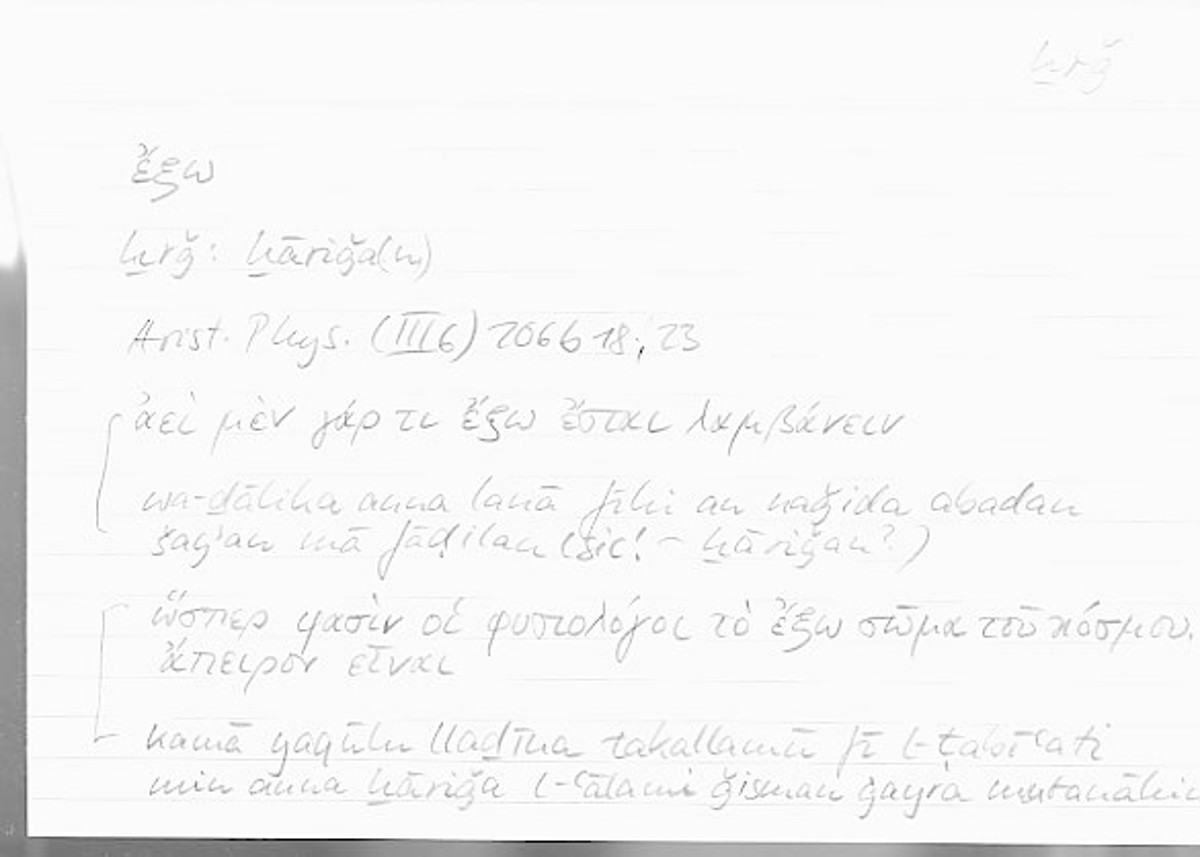 ḫrǧ
ἔξω
ḫrǧ: ḫāriǧa(n)
Arist. Phys. (III 6) 206b 18; 23
ἀεὶ μὲν γάρ τι ἔξω ἔσται λαμβάνειν
wa-ḏālika anna lanā fīhi an naǧida abadan
šayʾan mā fāḍilan (sic! – ḫāriǧan?)
ὥσπερ φασὶν οἱ φυσιολόγοι τὸ ἔξω σῶμα τοῦ κόσμου
ἄπειρον εἶναι
kamā yaqūlu lladīna takallamū fī l-ṭabīʿati
min anna ḫāriǧa l-ʿālami ǧisman ġayra mutanāhin